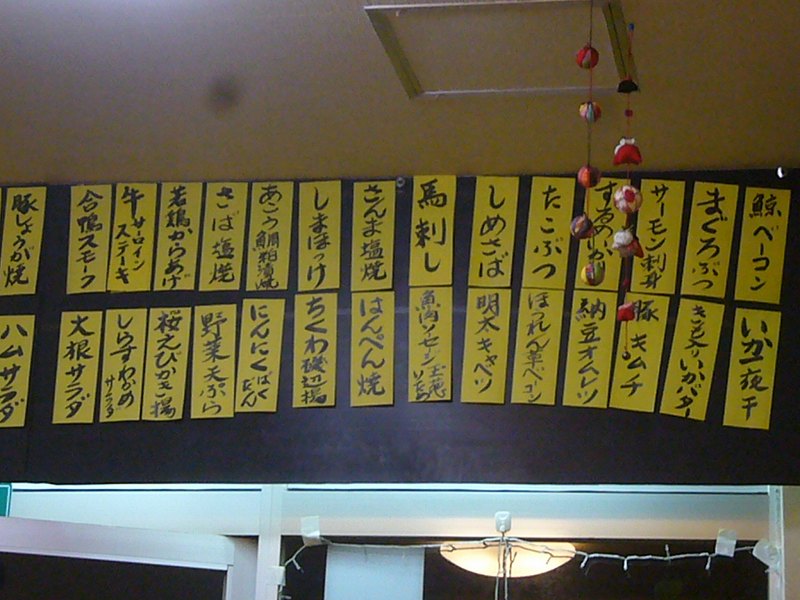 鯨ベーコン
まぐろぶつ
サーモン刺身
たこぶつ
しめさば
馬刺し
さんま塩焼
しまほっけ
あこう鯛粕漬焼
さば塩焼
若鶏からあげ
牛サーロイン
ステーキ
合鴨スモーク
豚しょうが焼
いか一夜干
きも入りいかバター
豚キムチ
納豆オムレツ
ほうれん草ベーコン
明太キャベツ
魚肉ソーセージ
はんぺん焼
ちくわ磯辺揚
にんにく
ばくだん
野菜天ぷら
桜えびかき揚
しらすわかめ
サラダ
大根サラダ
ハムサラダ